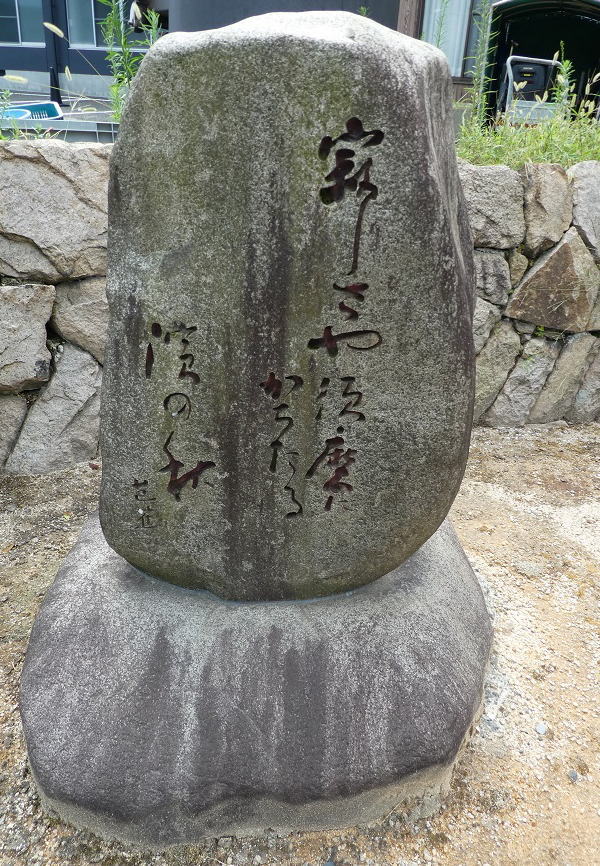 寂しさや須磨に
かちたる
濱の秋
芭蕉